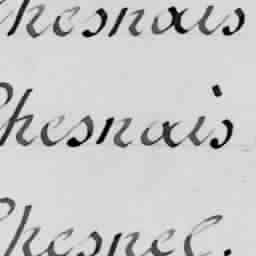 Chesnais
Chesnais
Chesnel.